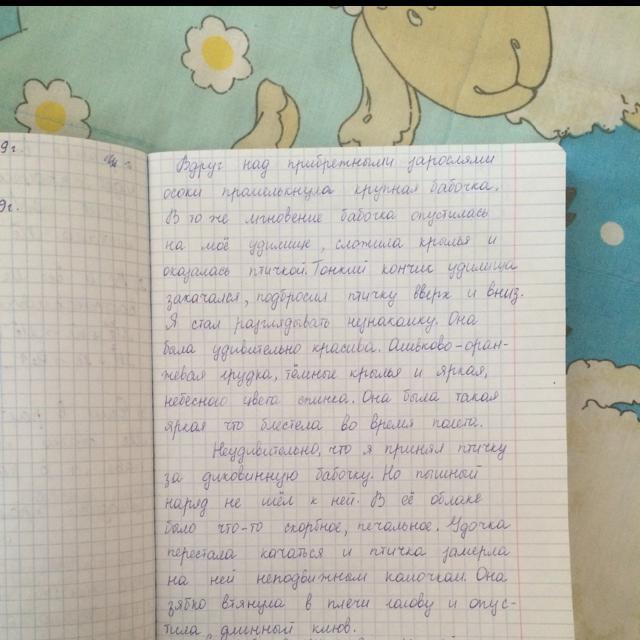 9г.
9г.
Вдруг над прибрежными зарослями
осоки промелькнула крупная бабочка.
В то же мгновение бабочка опустилась
на моё удилище, сложила крылья и
оказалась птичкой. Тонкий кончик удилища
закачался, подбросил птичку вверх и вниз.
Я стал разглядывать незнакомку. Она
была удивительно красива. Оливково-оран-
жевая грудка, тёмные крылья и яркая,
небесного цвета спинка. Она была такая
яркая что блестела во время полета.
Неудивительно, что я принял птичку
за диковинную бабочку. Но пышный
наряд не шёл к ней. В её облаке
было что-то скорбное, печальное. Удочка
перестала качаться и птичка замерла
на ней неподвижным комочком. Она
зябко втянула в плечи голову и опус-
тила длинный клюв.